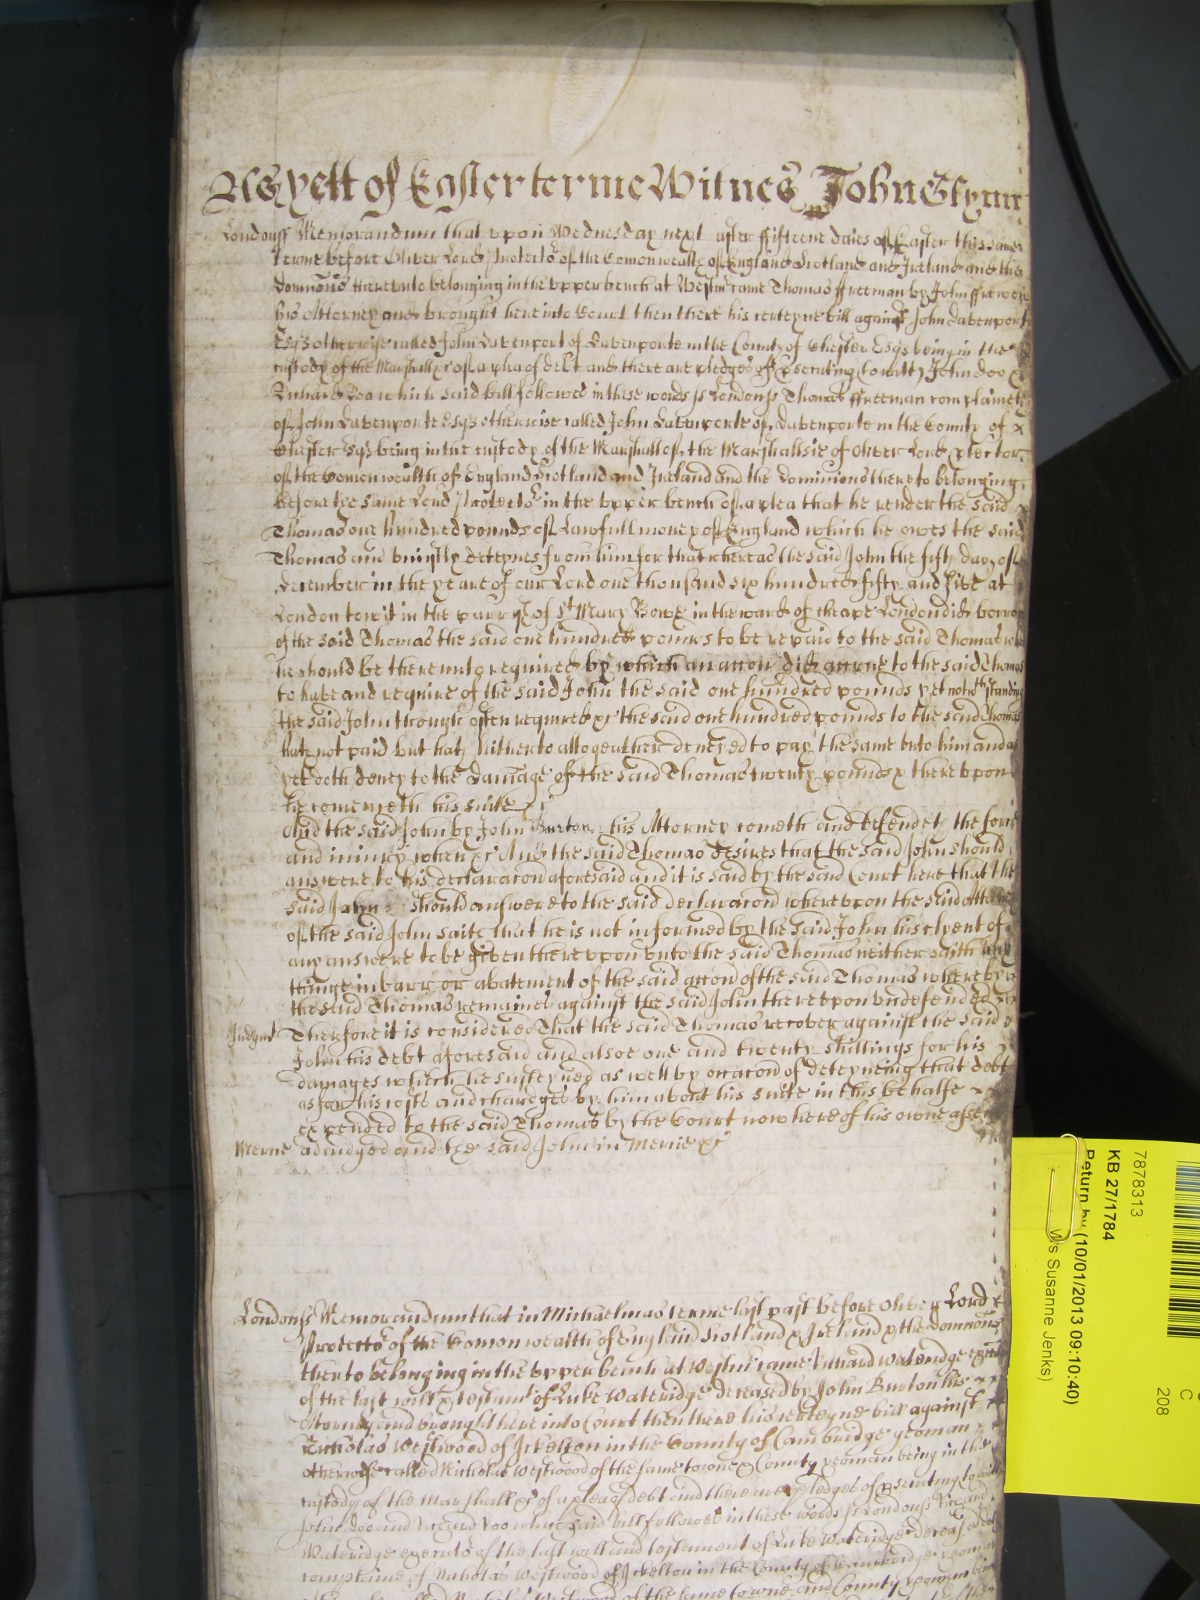 As yett of Easter terme Witnes John Glynn
Londonss Memorandum that upon Wednesday next after fifteene daies of Easter this same
terme before Oliver Lord Protector of the Comonwealth of England Scotland and Ireland and the
dominions thereunto belonging in the upper bench at Westmr came Thomas ffreeman by John
his Attorney and brought here into Court then there his certeyne bill against John Davenport
Esqr otherwise called John Davenport of Davenporte in the County of Chester Esqr being in the
custody of the Marshall &c of a plea of debt and there are pledges of prosecuting (towitt) John Doo &
Richard Roo which said bill followes in these words ss Londonss Thomas ffreeman complaineth
of John Davenporte Esqr otherwise called John Davenporte of Davenporte in the County of x
Chester Esqr being in the custody of the Marshall of the Marshallsie of Oliver Lord Protector
of the Comonwealth of England Scotland and Ireland and the Dominions thereto belonging
before the same Lord Protector in the upper bench of a plea that he render the said
Thomas one hundred pounds of Lawfull money of England which he owes the said
Thomas and uniustly deteynes from him for that whereas the said John the fifth day of
december in the yeare of our Lord one thousand six hundred fifty and five at
London towit in the parish of St Mary Bowe in the ward of Cheape London did borrow
of the said Thomas the said one hundred pounds to be repaid to the said Thomas when
he should be thereunto required by which an accon did accrue to the said Thomas
to have and require of the said John the said one hundred pounds yet notwthstanding
the said John though often required &c the said one hundred pounds to the said Thomas
hath not paid but hath hitherto altogeather denyed to pay the same unto him and as
yet doth deney to the damage of the said Thomas twenty pounds & thereupon
he comenceth his suite &c
And the said John by John Burton his Attorney cometh and defendeth the force
and iniury when &c And the said Thomas desires that the said John should
answere to his declaracon aforesaid and it is said by the said Court here that the
said John should answere to the said declaracon whereupon the said Attorney
of the said John saith that he is not informed by the said John his clyent of
any answere to be given thereupon unto the said Thomas neither saith any
thinge in barr or abatement of the said accon of the said Thomas whereby
the said Thomas remaines against the said John thereupon undefended
Judgmt Therefore it is considered That the said Thomas recover against the said
John his debt aforesaid and alsoe one and twenty shillings for his
damages which he susteyned as well by occacon of deteyneing that debt
as for his costs and charges by him about his suite in this behalfe
expended to the said Thomas by the Court now here of his owne assent
Mercie adiudged and the said John in Mercie &c
Londonss Memorandum that in Michaelmas terme last past before Oliver Lord
Protector of the Comonwealth of England Scotland & Ireland & the dominions
thereto belonging in the upper bench at Westmr came Richard Wateridge
of the last will & testamt of Luke Wateridge deceased by John Burton his
Attorney and brought here into Court then there his certeyne bill against
Nicholas Westwood of Ickelton in the County of Cambridge yeoman
otherwise called Nicholas Westwood of the same towne & County yeoman being in the
custody of the Marshall &c of a plea of debt and there are pledges of prosecuting towitt
John Doo and Richard Roo which said bill followes in these words ss Londonss Richard
Wateridge executor of the last will and testament of Luke Wateridge deceased
complaines of Nicholas Westwood of Ickelton in the County of Cambridge yeoman
Nicholas Westwood of the same towne and County yeoman being
7878313
KB 27/1784
Return by (10/01/2013 09:10:40)
Susanne Jenks)
C
208